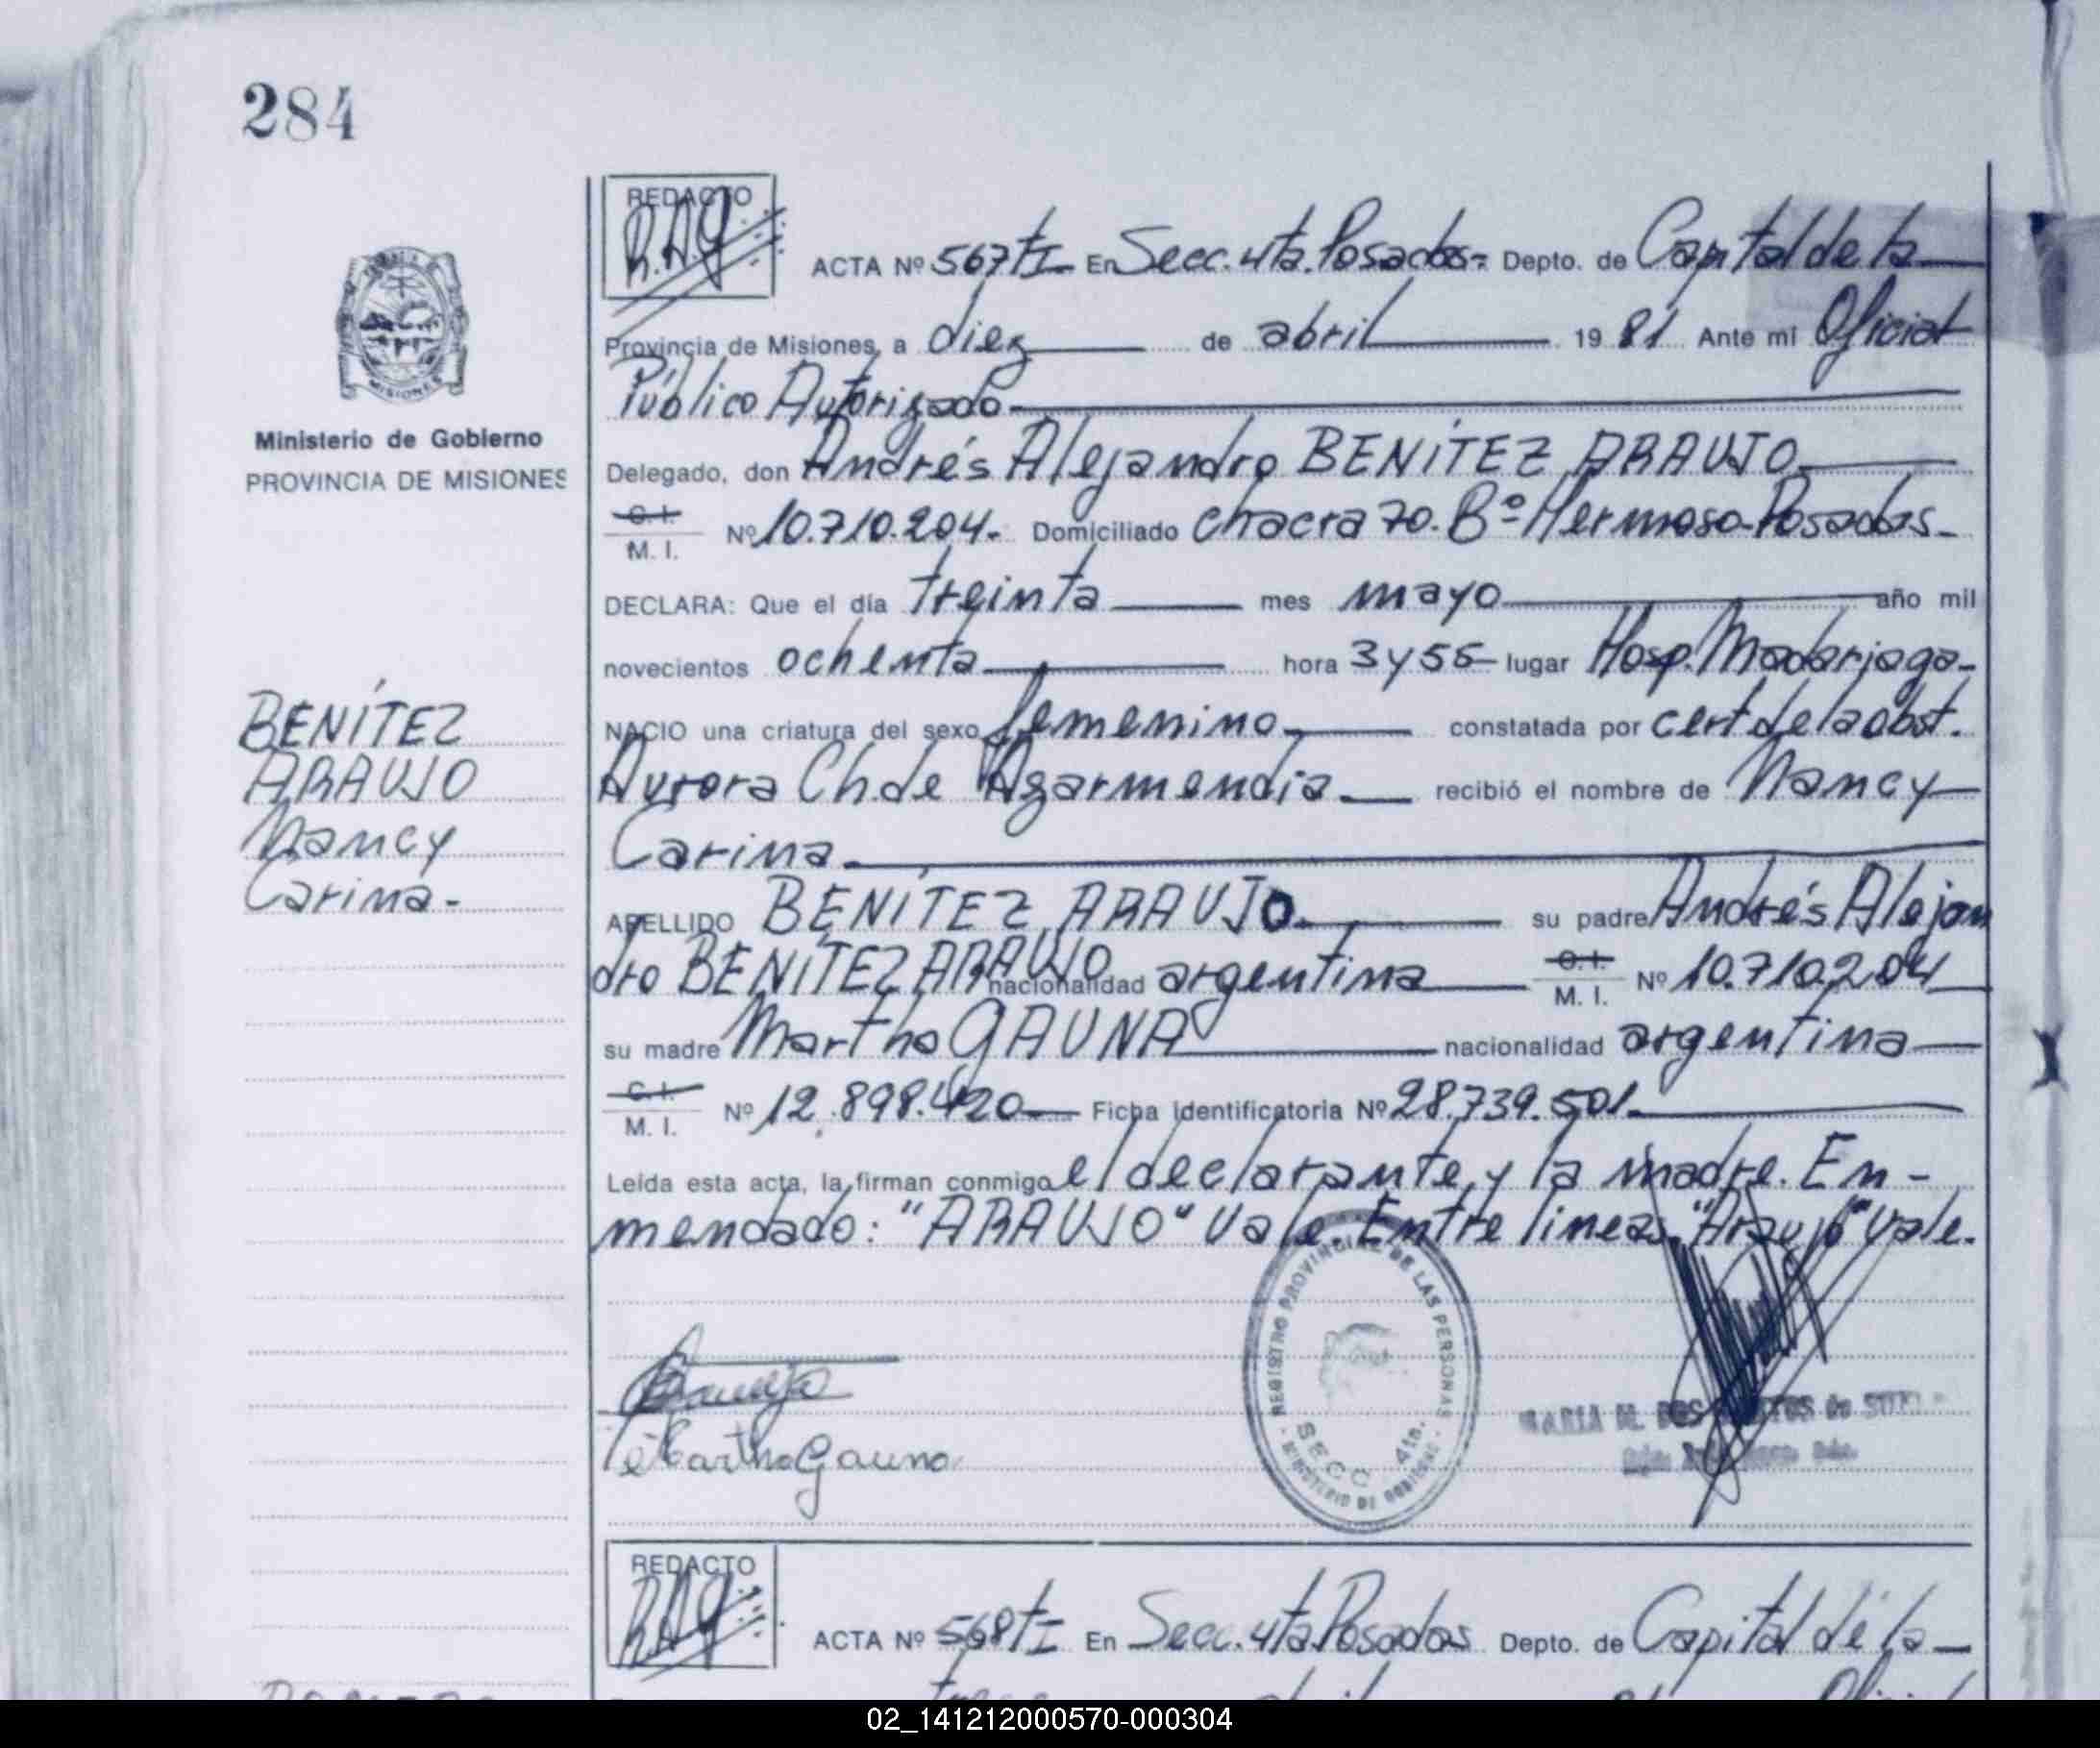 284
REDACTO
R.A.G
ACTA Nº 567 tI En Secc. 4ta. Posadas- Depto. de Capital de la
Provincia de Misiones, a diez de abril 1981 Ante mi Oficial
Público Autorizado
Ministerio de Gobierno
PROVINCIA DE MISIONES
Delegado, don Andrés Alejandro BENÍTEZ ARAUJO
C. I. M. I. Nº 10.710.204.- Domiciliado chacra 70. Bº Hermoso-Posadas-
DECLARA: Que el día treinta mes mayo año mil
novecientos ochenta hora 3 y 55 lugar Hosp. Madariaga-
NACIO una criatura del sexo femenino constatada por cert de la obst.
Aurora Ch. de Agarmendia recibió el nombre de Nancy
Carina
BENÍTEZ
ARAUJO
Nancy
Carina-
APELLIDO BENÍTEZ ARAUJO su padre Andrés Alejan
dro BENÍTEZ ARAUJO nacionalidad argentina C. I. M. I. Nº 10.710.204
su madre Martha GAUNA nacionalidad argentina
C. I. M. I. Nº 12.898.420 Ficha identificatoria Nº 28.739.501
Leída esta acta, la firman conmigo el declarante, y la madre. En-
mendado: "ARAUJO" Vale. Entre líneas "Araujo" vale.
REGISTRO PROVINCIAL DE LAS PERSONAS
SECC. 4ta.
MINISTERIO DE GOBIERNO
Martha Gauna
MARIA
REDACTO
R.A.G
ACTA Nº 568 tI En Secc. 4ta Posadas Depto. de Capital de la
02_141212000570-000304